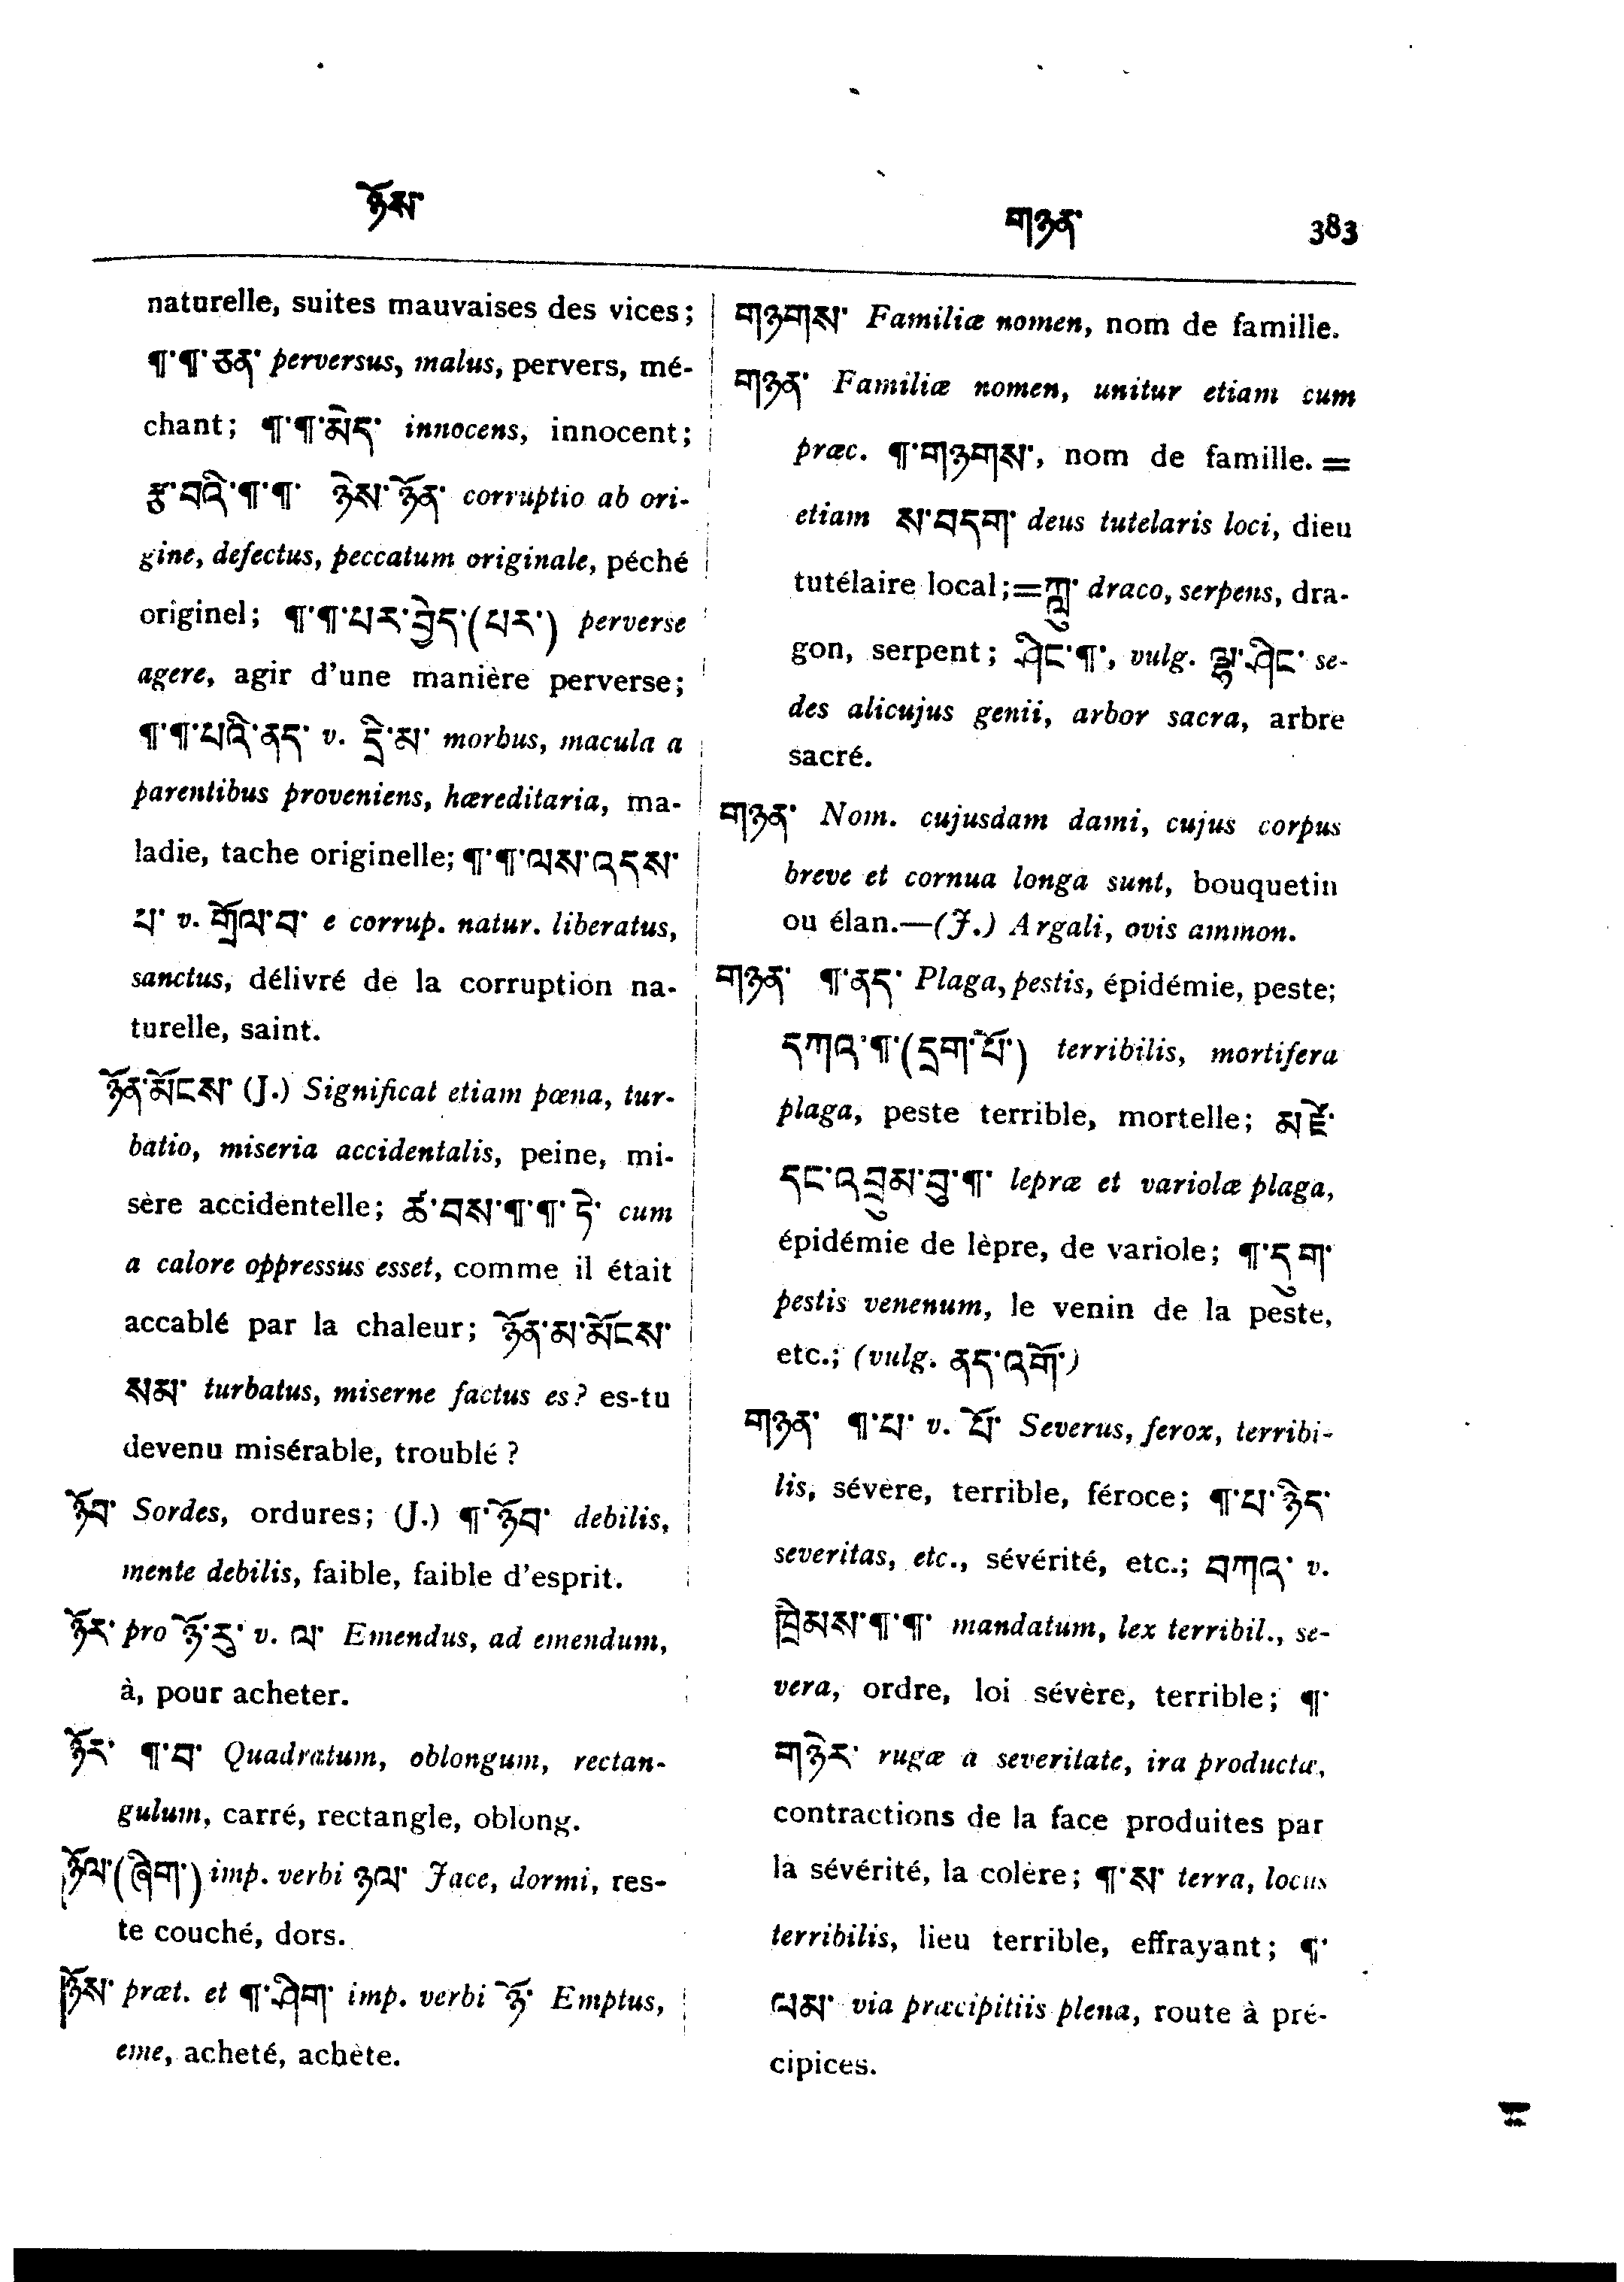 ཉོས་
གཉན་ 383
naturelle, suites mauvaises des vices;
¶་¶་ཅན་ perversus, malus, pervers, mé-
chant; ¶་¶་མེད་ innocens, innocent;
རྩ་བའི་¶་¶་ ཉེས་ཉོན་ corruptio ab ori-
gine, defectus, peccatum originale, péché
originel; ¶་¶་པར་བྱེད་(པར་) perverse
agere, agir d'une manière perverse;
¶་¶་པའི་ནད་ v. དྲི་མ་ morbus, macula a
parentibus proveniens, hæreditaria, ma-
ladie, tache originelle; ¶་¶་ལས་འདས་
པ་ v. གྲོལ་བ་ e corrup. natur. liberatus,
sanctus, délivré de la corruption na-
turelle, saint.
ཉོན་མོངས་ (J.) Significat etiam pœna, tur-
batio, miseria accidentalis, peine, mi-
sère accidentelle; ཚ་བས་¶་¶་ དེ་ cum
a calore oppressus esset, comme il était
accablé par la chaleur; ཉོན་མ་མོངས་
སམ་ turbatus, miserne factus es? es-tu
devenu misérable, troublé?
ཉོབ་ Sordes, ordures; (J.) ¶་ཉོབ་ debilis,
mente debilis, faible, faible d'esprit.
ཉོར་ pro ཉོ་རུ་ v. ལ་ Emendus, ad emendum,
à, pour acheter.
ཉོར་ ¶་བ་ Quadratum, oblongum, rectan-
gulum, carré, rectangle, oblong.
ཉོལ་(ཞིག་) imp. verbi ཉལ་ Jace, dormi, res-
te couché, dors.
ཉོས་ præt. et ¶་ཤིག་ imp. verbi ཉོ་ Emptus,
eme, acheté, achète.
གཉགས་ Familiæ nomen, nom de famille.
གཉན་ Familiæ nomen, unitur etiam cum
præc. ¶་གཉགས་, nom de famille. =
etiam ས་བདག་ deus tutelaris loci, dieu
tutélaire local;=ཀླུ་ draco, serpens, dra-
gon, serpent; ཤིང་¶་, vulg. ལྷ་ཤིང་ se-
des alicujus genii, arbor sacra, arbre
sacré.
གཉན་ Nom. cujusdam dami, cujus corpus
breve et cornua longa sunt, bouquetin
ou élan.—(J.) Argali, ovis ammon.
གཉན་ ¶་ནད་ Plaga, pestis, épidémie, peste;
དཀའ་¶་(དྲག་པོ་) terribilis, mortifera
plaga, peste terrible, mortelle; མཛེ་
དང་འབྲུམ་བུ་¶་ lepræ et variolæ plaga,
épidémie de lèpre, de variole; ¶་དུག་
pestis venenum, le venin de la peste,
etc.; (vulg. ནད་འགོ་)
གཉན་ ¶་པ་ v. པོ་ Severus, ferox, terribi-
lis, sévère, terrible, féroce; ¶་པ་ཉིད་
severitas, etc., sévérité, etc.; བཀའ་ v.
ཁྲིམས་¶་¶་ mandatum, lex terribil., se-
vera, ordre, loi sévère, terrible; ¶་
གཉེར་ rugæ a severitate, ira productæ,
contractions de la face produites par
la sévérité, la colère; ¶་ས་ terra, locus
terribilis, lieu terrible, effrayant; ¶་
ལམ་ via præcipitiis plena, route à pré-
cipices.